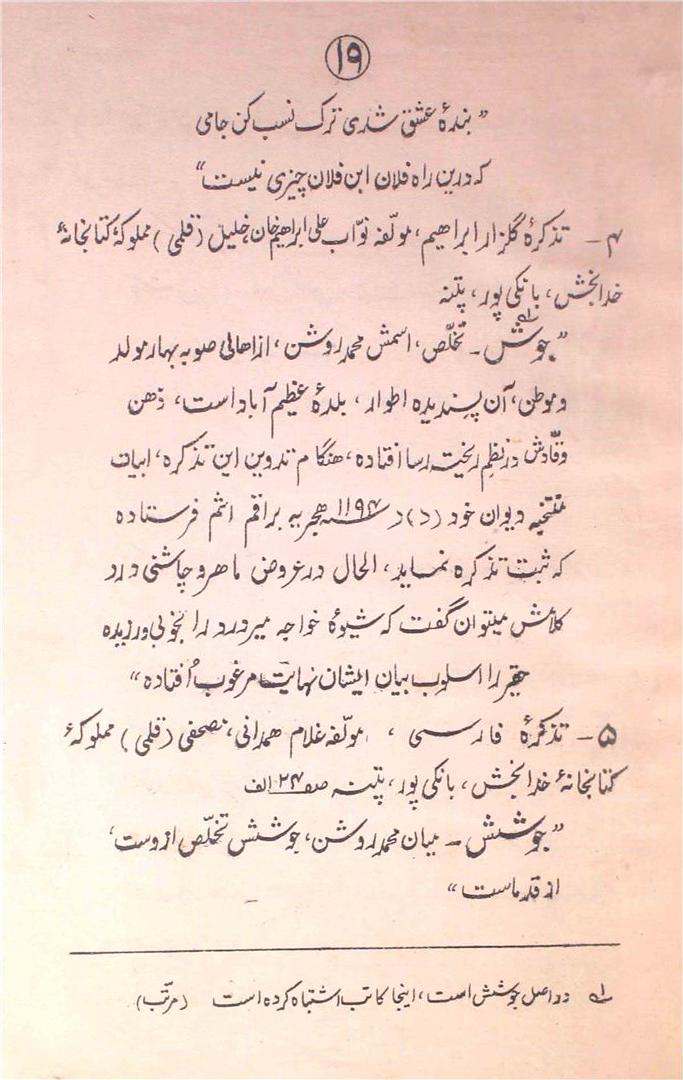 ۱۹
" بندۂ عشق شدی ترک نسب کن جامی
کہ درین راہ فلان ابن فلان چیزی نیست "
۴ - تذکرۂ گلزار ابراهیم، مولّفہ نوّاب علی ابراهیم خان، خلیل (قلمی) مملوکۂ کتابخانۂ
خدا بخش، بانکی پور، پتنہ
" جوش ۱؎ - تخلّص، اسمش محمد روشن، از اهالی صوبہ بهار مولد
و موطن، آن پسندیدہ اطوار، بلدۂ عظیم آباد است، ذهن
وقّادش در نظم ریختہ رسا افتادہ، هنگام تدوین این تذکرہ، ابیات
منتخبہ دیوان خود (د) در ۱۱۹۴ سنہ هجریہ براقم اثم فرستادہ
کہ ثبت تذکرہ نماید، الحال در عروض ماهر و چاشنی درد
کلامش میتوان گفت کہ شیوۂ خواجہ میر درد را بخوبی ورزیدہ
حقیر را اسلوب بیان ایشان نهایت مرغوب اُفتادہ "
۵ - تذکرۂ فارسی ، مولّفہ غلام همدانی، مصحفی (قلمی) مملوکۂ
کتابخانۂ خدا بخش، بانکی پور، پتنہ صفہ ۲۴ الف
" جوشش - میان محمد روشن، جوشش تخلّص ازوست،
از قدماست "
۱؎ در اصل جوشش است، اینجا کاتب اشتباہ کردہ است (مرتّب)